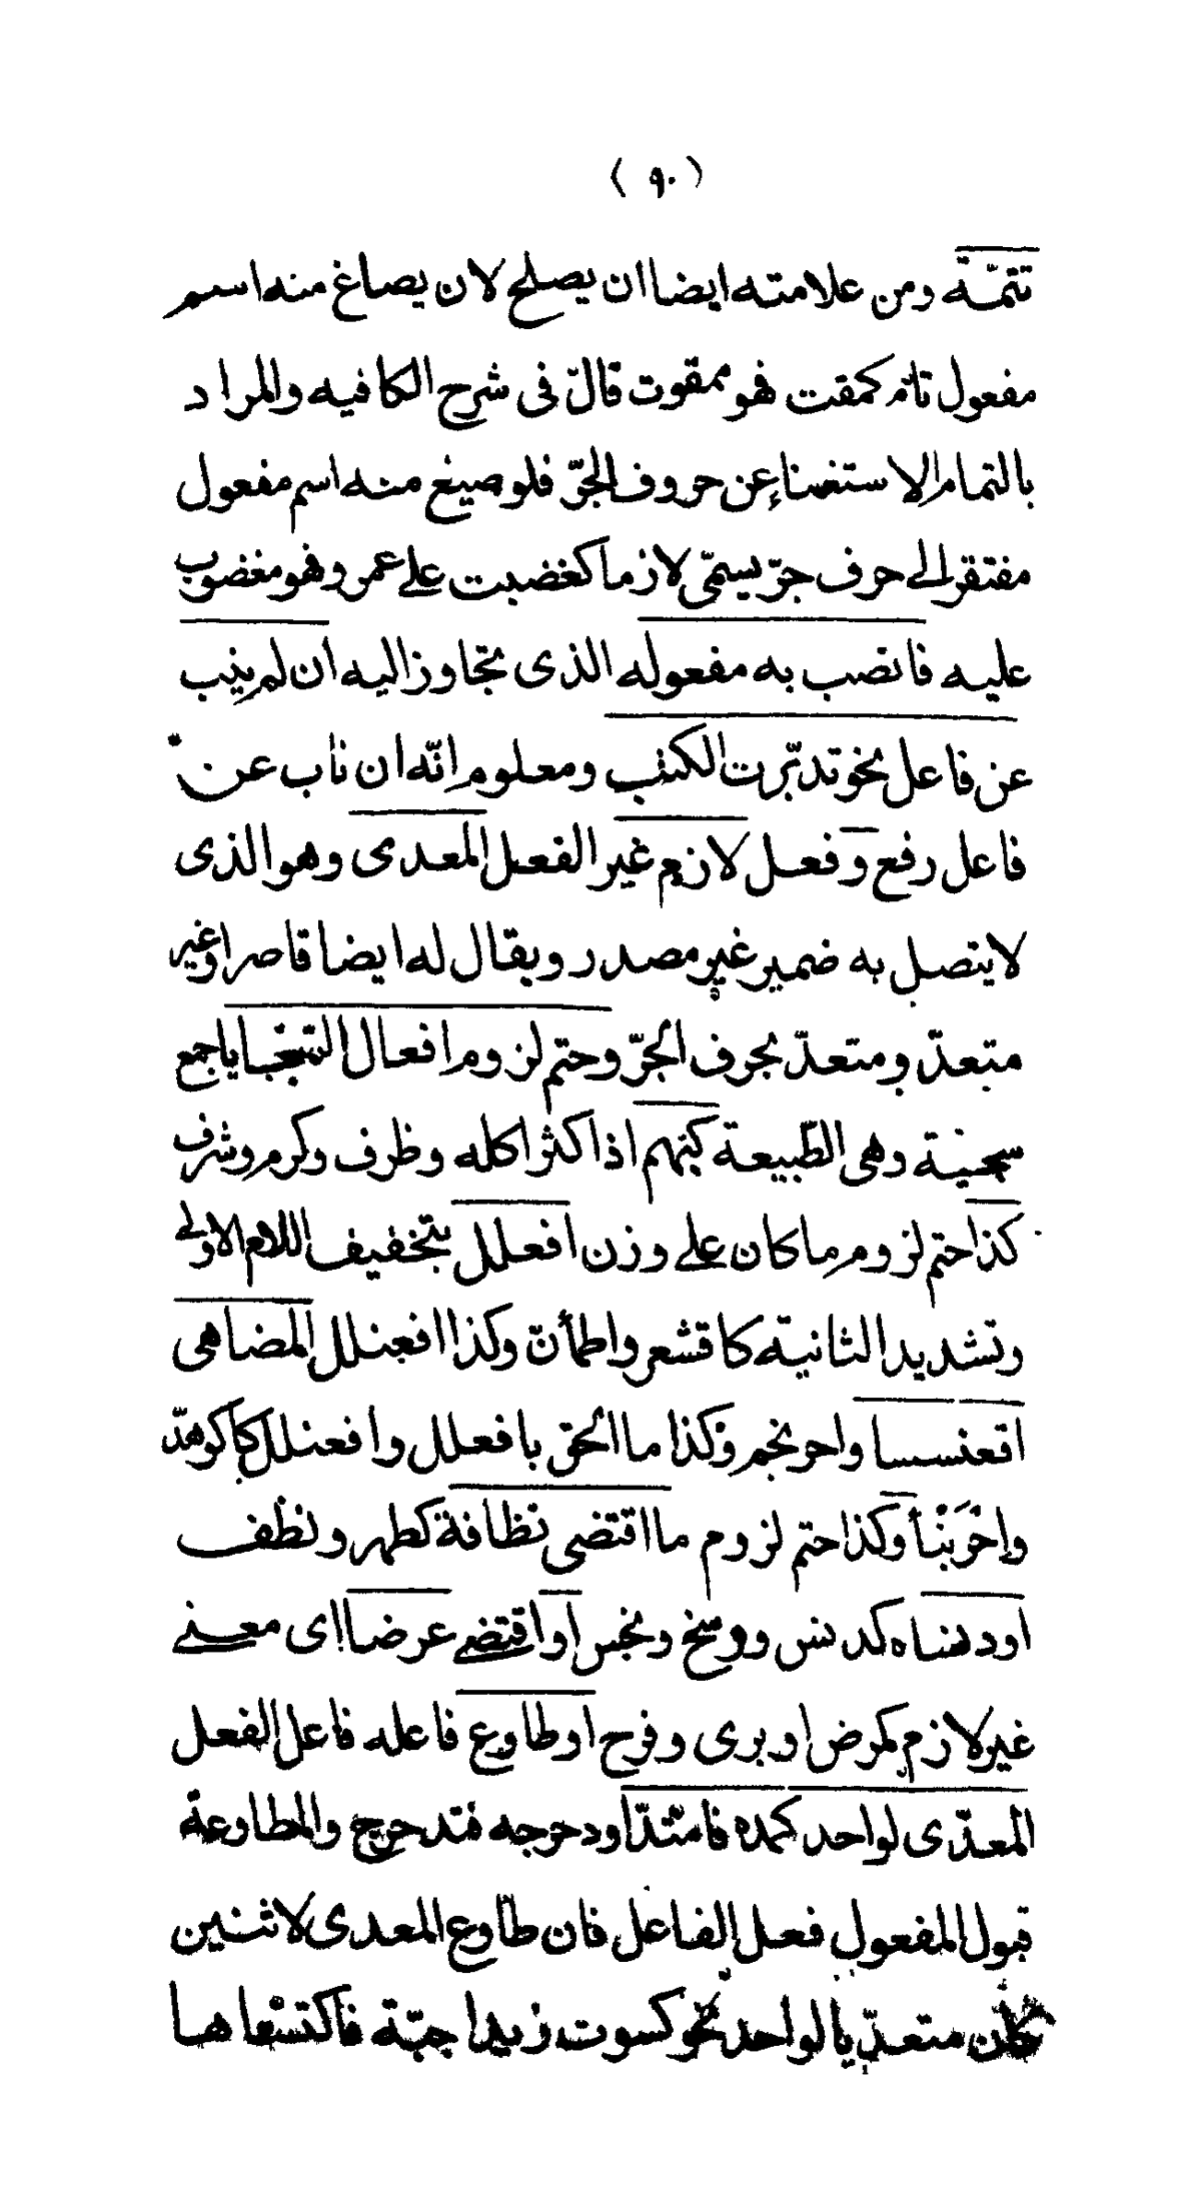 (٩٠)
تتمّة ومن علامته ايضا ان يصلح لان يصاغ منه اسم
مفعول تام كمقت فهو ممقوت قال فى شرح الكافيه والمراد
بالتمام الاستغناء عن حروف الجرّ فلو صيغ منه اسم مفعول
مفتقر الى حرف جرّ يسمّى لازما كغضبت على عمرو فهو مغضوب
عليه فانصب به مفعوله الذى تجاوز اليه ان لم ينب
عن فاعل نحو تدبّرت الكتب ومعلوم انّه ان ناب عن
فاعل رفع وفعل لازم غير الفعل المعدى وهو الذى
لا يتصل به ضمير غير مصدر ويقال له ايضا قاصر او غير
متعدّ ومتعدّ بحرف الجرّ وحتم لزوم افعال السّجايا جمع
سجيّة وهى الطّبيعة كنهم اذا كثر اكله وظرف وكرم وشرف
كذا حتم لزوم ما كان على وزن افعلل بتخفيف اللام الاولى
وتشديد الثانية كاقشعر واطمأنّ وكذا افعنلل المضاهى
اقعنسسا واحرنجم وكذا ما الحق بافعلل وافعنلل كاكوهدّ
واحْرَنْبَأ وكذا حتم لزوم ما اقتضى نظافة كطهر ونظف
او دنساه كدنس ووسخ ونجس او اقتضى عرضا اى معنى
غير لازم كمرض او برى وفرح او طاوع فاعله فاعل الفعل
المعدّى لواحد كمده فامتدّا ودحرجه فتدحرج والمطاوعة
قبول المفعول فعل الفاعل فان طاوع المعدى لاثنين
كان متعدّيا لواحد نحو كسوت زيدا جبّة فاكتساها